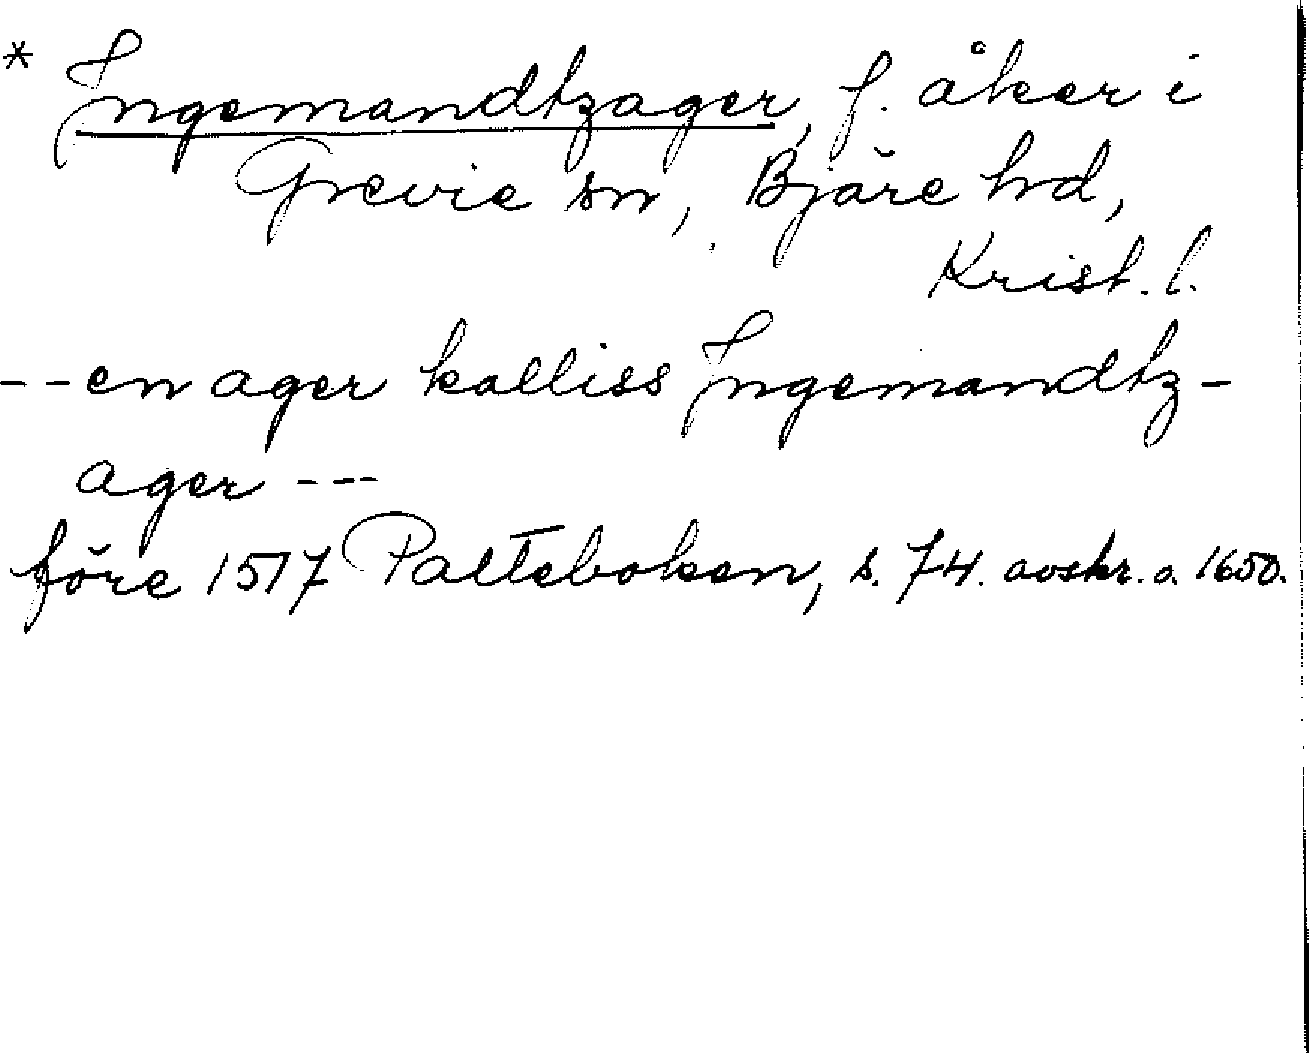 * Ingemandtzager, f. åker i
Grevie sn, Bjäre hd,
Krist. l.
--en ager kalliss Ingemandtz-
ager ---
före 1517 Palteboken, s. 74. avskr. o. 1650.